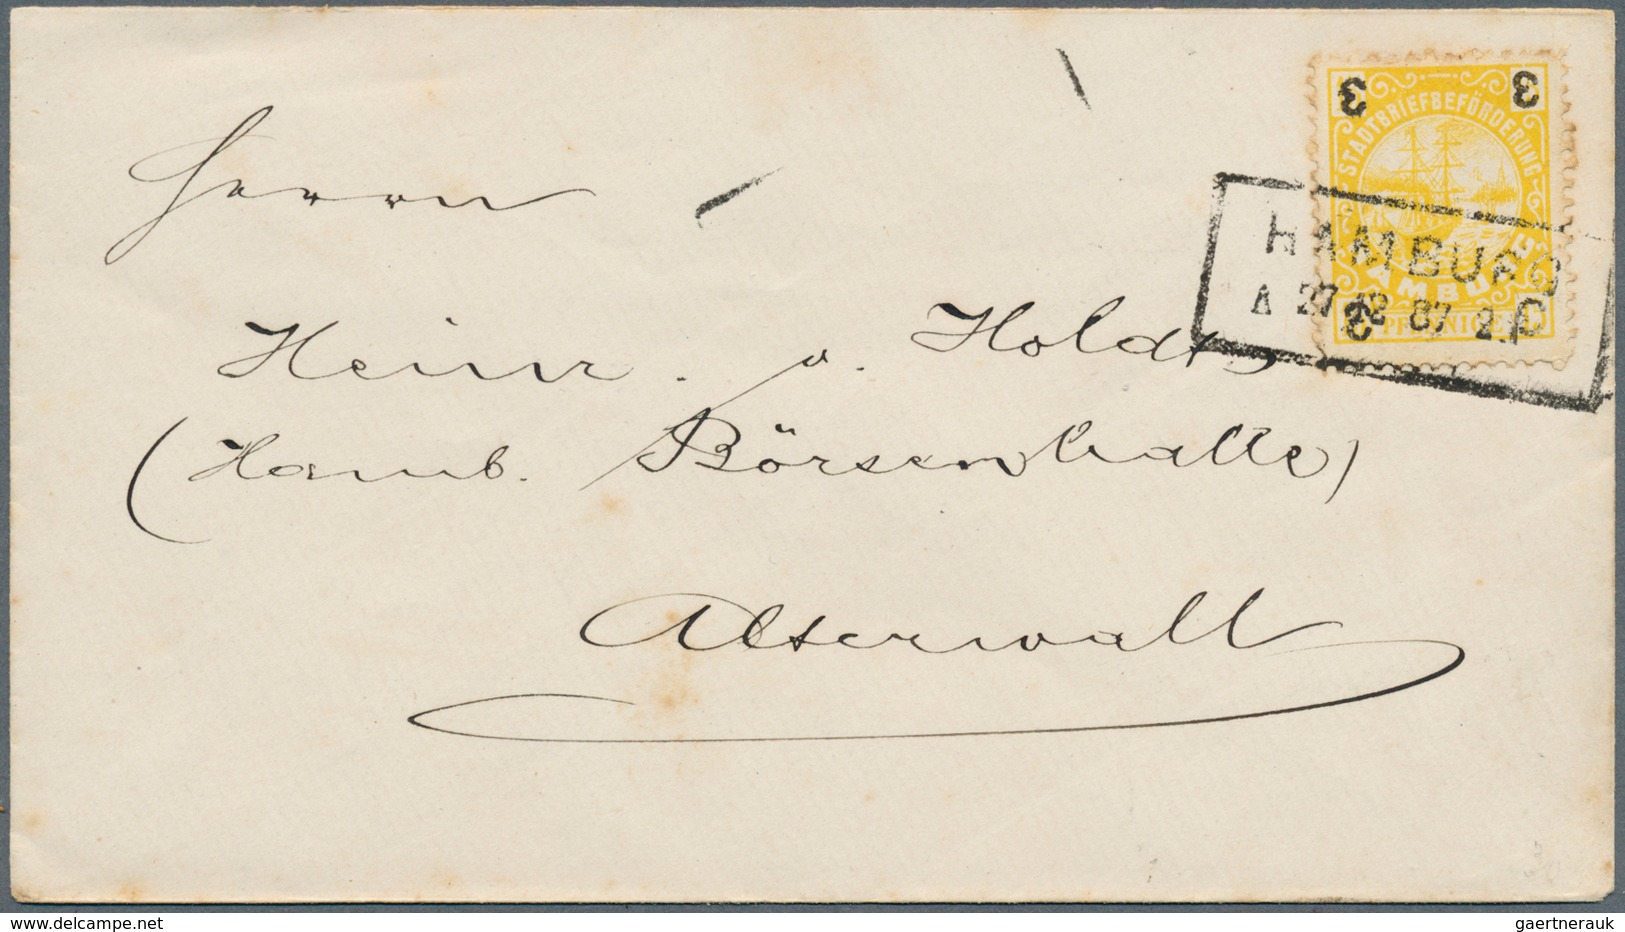 3 3
STADTBRIEFBEFÖRDERUNG
HAMBURG
3 PFENNIGE
HAMBURG
A 27 12 87 2.
Herrn
Heinr. v. Holdt,
(Hamb. Börsenhalle)
Alterwall
www.delcampe.net
gaertnerauk